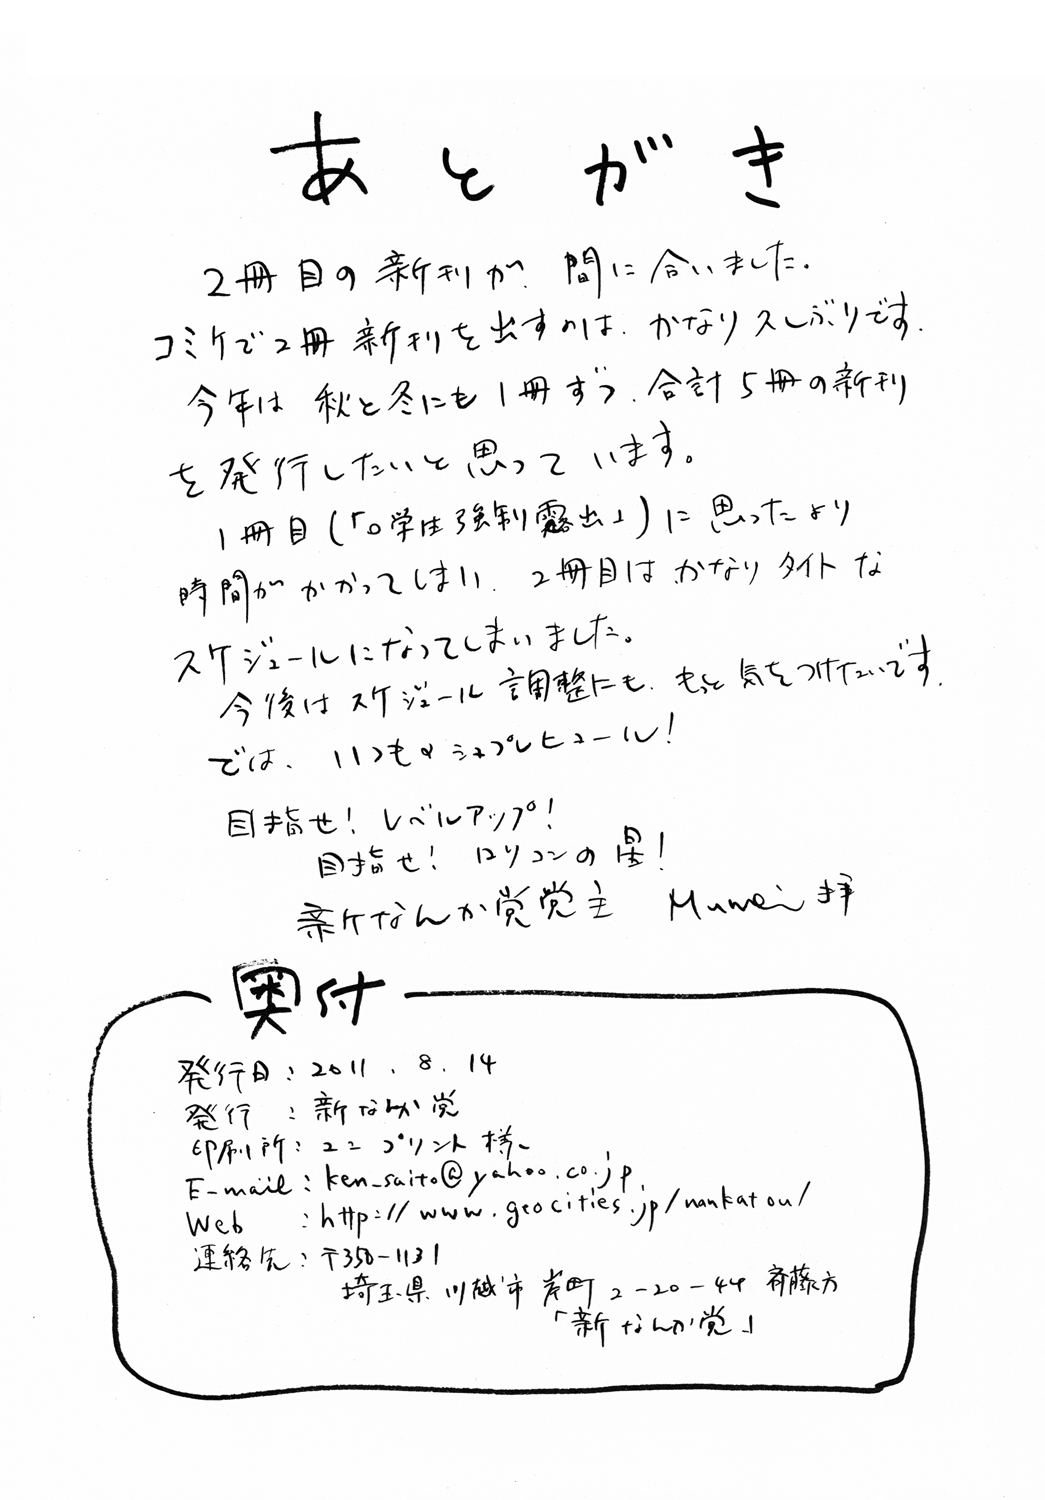 あとがき
2冊目の新刊が、間に合いました。
コミケで2冊新刊を出すのは、かなり久しぶりです。
今年は秋と冬にも1冊ずつ、合計5冊の新刊
を発行したいと思っています。
1冊目(「○学生強制露出」)に思ったより
時間がかかってしまい、2冊目はかなりタイトな
スケジュールになってしまいました。
今後はスケジュール調整にも、もっと気をつけたいです。
では、いつものシュプレヒコール!
目指せ!レベルアップ!
目指せ!ロリコンの星!
新なんか党党主 Mumei拝
奥付
発行日:2011.8.14
発行:新なんか党
印刷所:コニプリント様
E-mail:ken_saito@yahoo.co.jp
Web:http://www.geocities.jp/nankatou/
連絡先:〒350-1131
埼玉県川越市岸町2-20-44 斉藤方
「新なんか党」